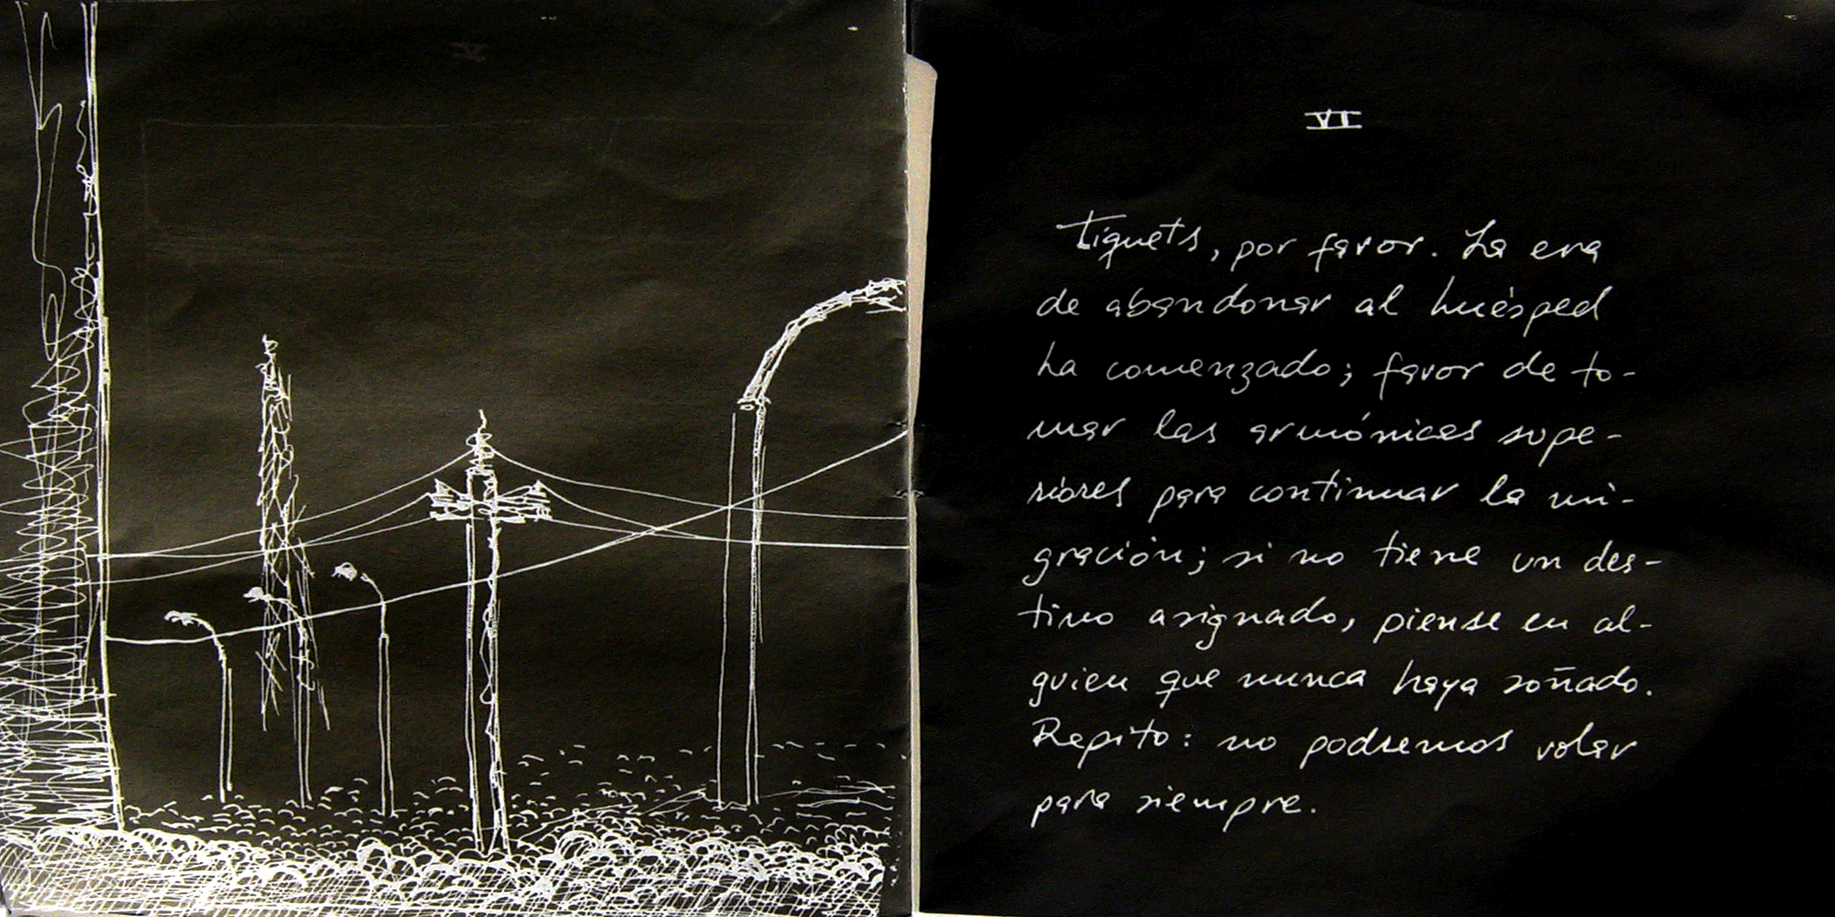 VI
Tiquets, por favor. La era
de abandonar al huésped
ha comenzado; favor de to-
mar las armónicas supe-
riores para continuar la mi-
gración; si no tiene un des-
tino asignado, piense en al-
guien que nunca haya soñado.
Repito: no podremos volar
para siempre.